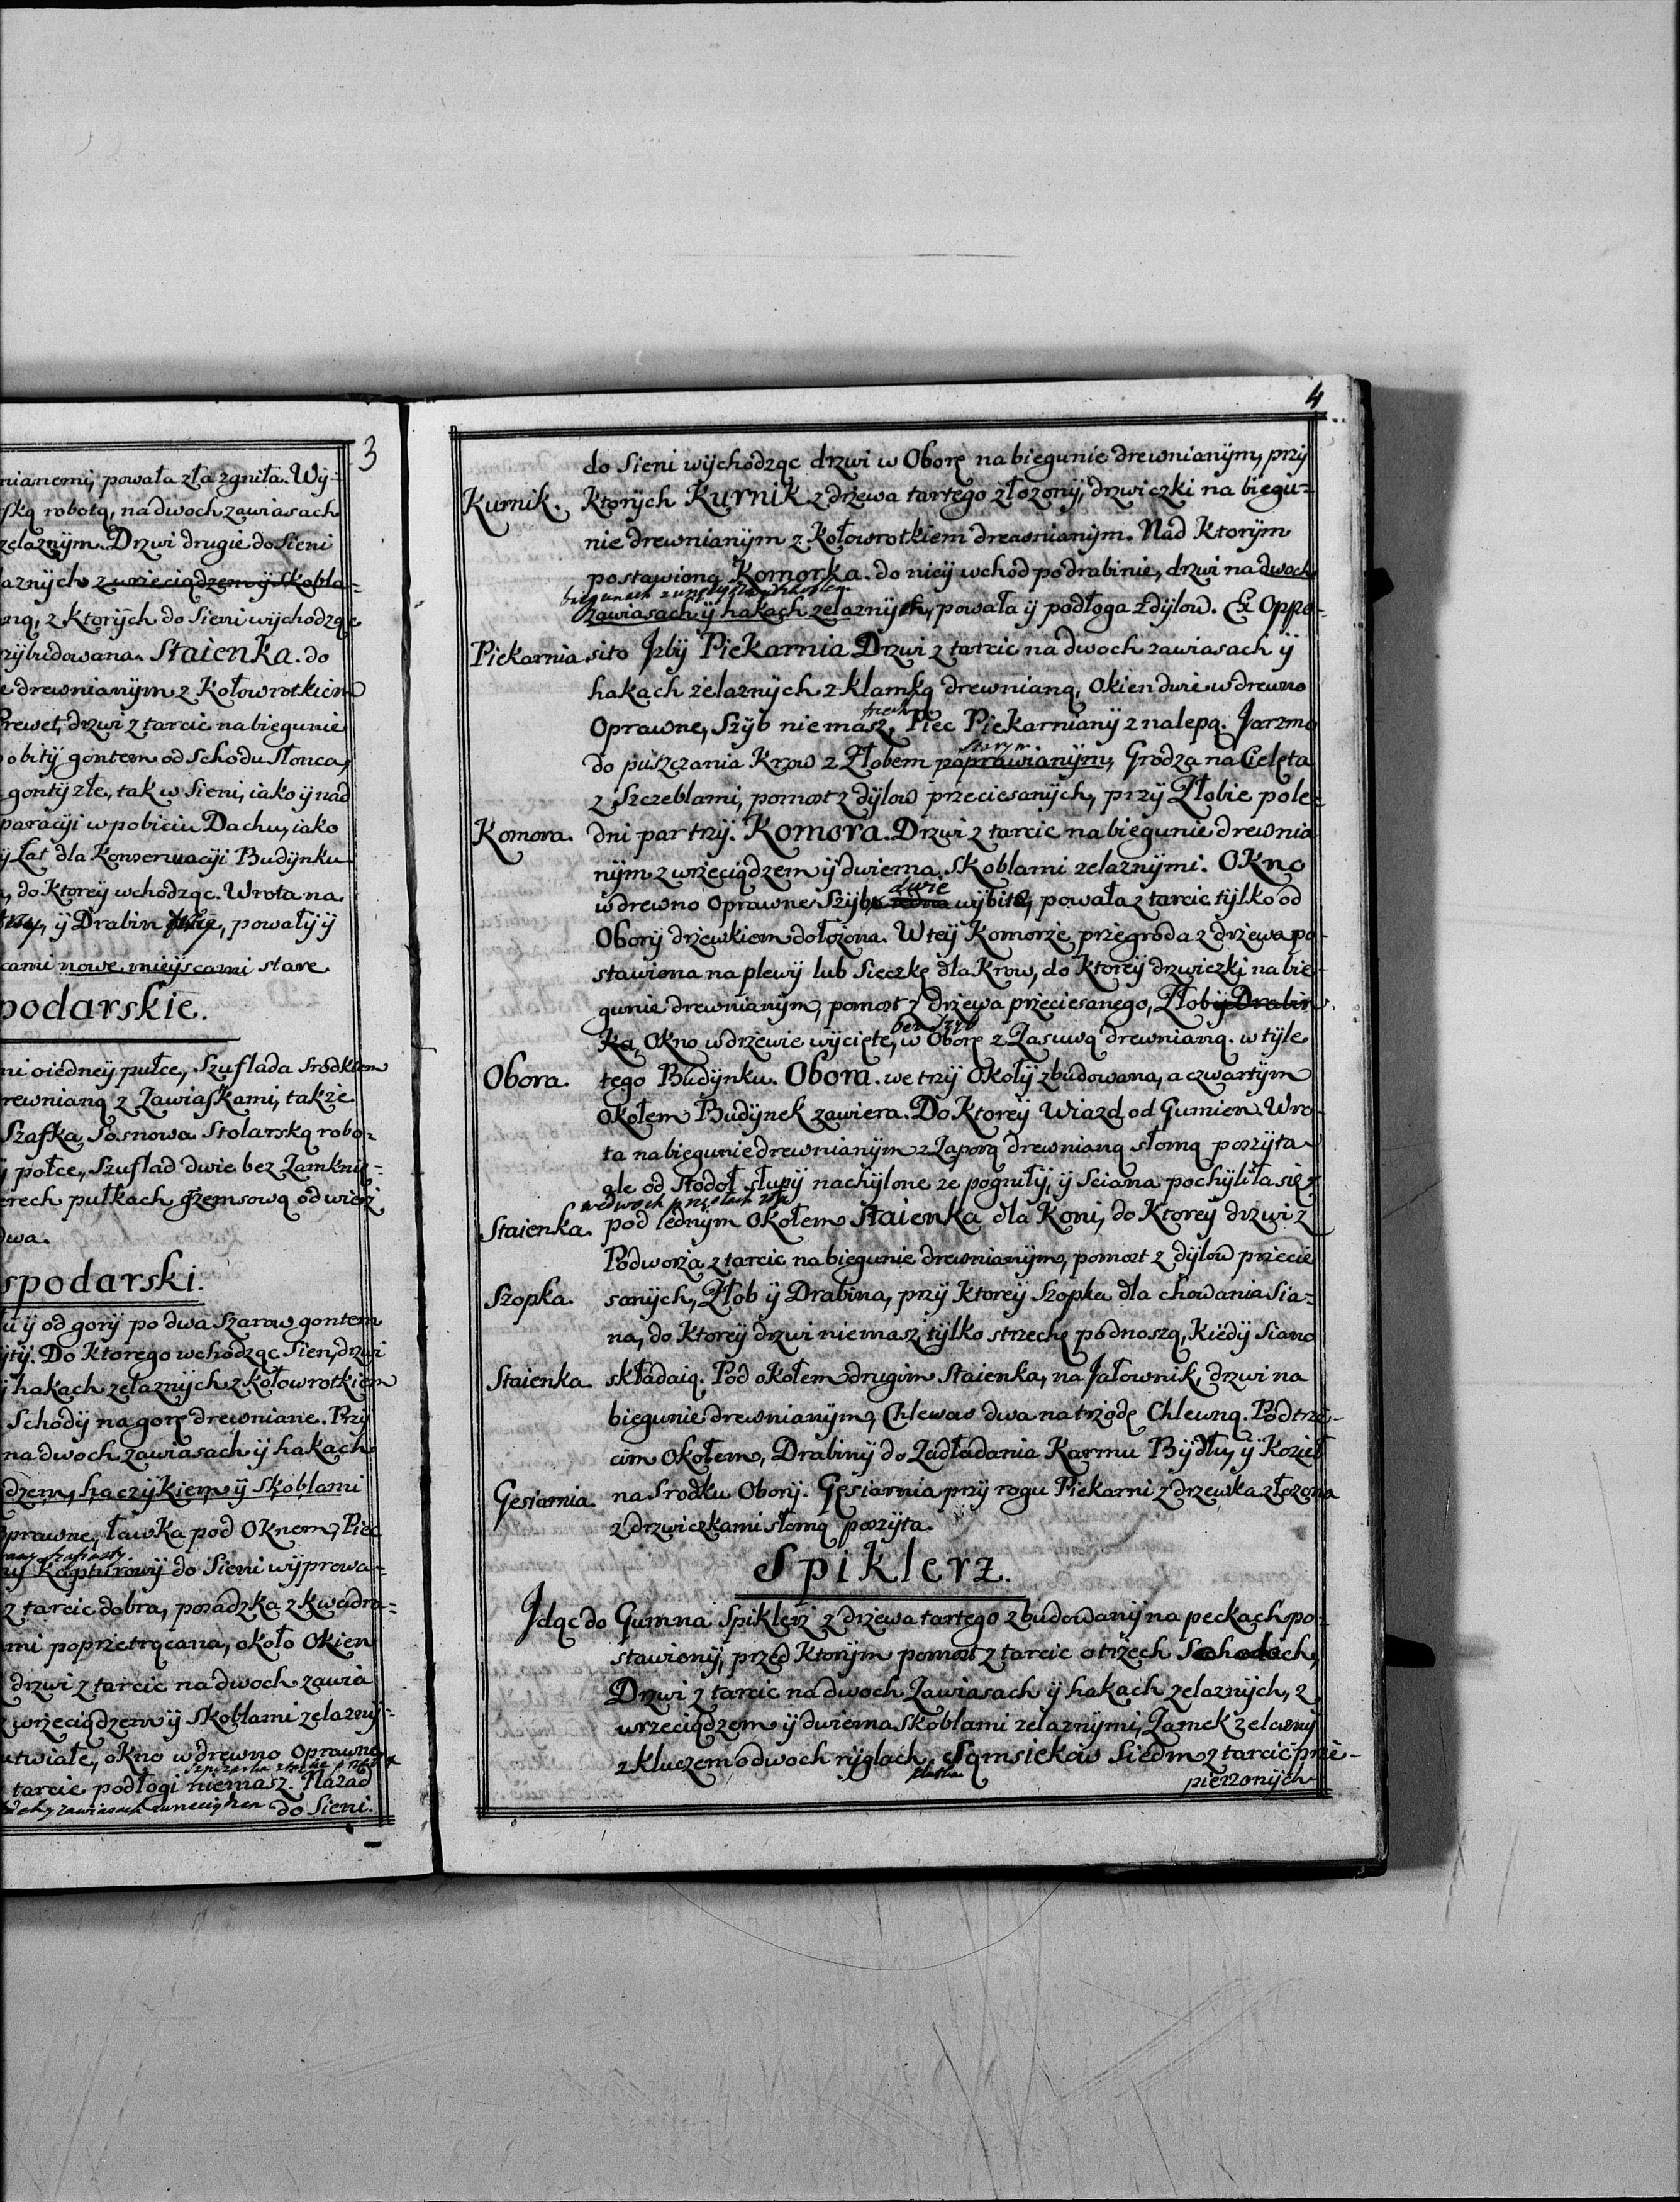 3
nianemi, powała zła zgniła. Wÿ-
ską robotą, na dwoch zawiasach
zelaznÿm. Drzwi drugie do Sieni
laznÿch z wrzeciądzem ÿ skobla-
ną, z Ktorÿch do Sieni wÿchodząc
rzÿbudowana. Staienka. do
e drewnianÿm z Kołowrotkiem
Prewet, drzwi z tarcic na biegunie
obitÿ gontem od Schodu Słonca,
gontÿ złe, tak w Sieni, iako ÿ nad
paracÿi w pobiciu Dachu, iako
ÿ Łat dla Konserwacÿi Budÿnku
, do Ktoreÿ wchodząc. Wrota na
ÿ Drabin, powałÿ ÿ
cami nowe mieÿscami stare
podarskie.
ni oiedneÿ pułce, Szuflada srodkiem
rewnianą z Zawiaskami, także
Szafka, Sosnowa Stolarską robo-
ÿ połce, Szuflad dwie bez Zamknię-
erech pułkach gzemsową od wieżÿ
dwa.
spodarski.
u ÿ od gorÿ po dwa Szarow gontem
ÿtÿ. Do Ktorego wchodząc Sien, drzwi
ÿ hakach zelaznÿch z kołowrotkiem
Schodÿ na gorę drewniane. Przÿ
na dwoch zawiasach ÿ hakach
dzem, haczÿkiem ÿ skoblami
oprawne, ławka pod Oknem, Piec
nÿ Kapturowÿ do Sieni wÿprowa-
z tarcic dobra, posadzka z kwadra-
mi poprzetrącana, około Okien
drzwi z tarcic na dwoch zawia
wrzeciądzem ÿ skoblami zelaznÿ-
twiałe, okno w drewno oprawne
tarcic podłogi niemasz. Nazad
do Sieni.
4
do Sieni wÿchodząc drzwi w Oborę na biegunie drewnianÿm, przÿ
Kurnik. Ktorÿch Kurnik z drzewa tartego złozonÿ, drzwiczki na biegu-
nie drewnianÿm z Kołowrotkiem drewnianÿm. Nad Ktorÿm
postawiona Komorka. do nieÿ wchod po drabinie, drzwi na dwoch
biegunach
zawiasach ÿ hakach zelaznÿch, powała ÿ podłoga z dÿlow. Ex Oppo-
Piekarnia. sito Izbÿ Piekarnia Drzwi z tarcic na dwoch zawiasach ÿ
hakach żelaznÿch z klamką drewnianą, Okien dwie w drewno
Oprawne, Szÿb niemasz, Piec Piekarnianÿ z nalepą. Jarzmo
starym
do puszczania Krow z Złobem poprawianÿm, Grodza na Cielęta
z Szczeblami, pomost z dÿlow przeciesanÿch, przÿ Złobie pole-
Komora. dni par trzÿ. Komora. Drzwi z tarcic na biegunie drewnia
nÿm z wrzeciądzem ÿ dwiema skoblami zelaznÿmi. Okno
dwie
w drewno Oprawne Szÿb iedna wÿbite, powała z tarcic tÿlko od
Oborÿ drzewkiem dołożona. W teÿ Komorze przegroda z drzewa po-
stawiona na plewÿ lub Sieczkę dla Krow, do Ktoreÿ drzwiczki na bie-
gunie drewnianÿm, pomost z drzewa przeciesanego, Złob ÿ Drabin
bez Szÿb
ka, Okno w drzewie wÿcięte, w Oborę z Zasuwą drewnianą. w tÿle
Obora. tego Budÿnku. Obora. we trzÿ Okołÿ zbudowana, a czwartÿm
Okołem Budÿnek zawiera. Do Ktoreÿ Wiazd od Gumien. Wro-
ta na biegunie drewnianÿm z Zaporą drewnianą słomą poszÿta
ale od Stodoł słupÿ nachÿlone ze pogniłÿ, ÿ Sciana pochÿliła się,
we dwoch
Staienka. pod iednÿm Okołem Staienka dla Koni, do Ktoreÿ drzwi z
Podworza z tarcic na biegunie drewnianÿm, pomost z dÿlow przecie
Szopka. sanÿch, Złob ÿ Drabina, przÿ Ktoreÿ Szopka dla chowania Sia-
na, do Ktoreÿ drzwi niemasz tÿlko strzechę podnoszą, Kiedÿ Siano
Staienka. składaią. Pod okołem drugim Staienka, na Jałownik, drzwi na
biegunie drewnianÿm, Chlewow dwa na trzodę Chlewną. Pod trze-
cim Okołem, Drabinÿ do Zadładania Karmu Bÿdłu, ÿ Kozieł
Gęsiarnia. na Srodku Oborÿ. Gęsiarnia przÿ rogu Piekarni z drzewka złożona
z drzwiczkami słomą poszÿta.
Spiklerz.
Jdąc do Gumna Spiklerz z drzewa tartego zbudowanÿ na peckach po-
stawionÿ, przed Ktorÿm pomost z tarcic o trzech Schodach,
Drzwi z tarcic na dwoch Zawiasach ÿ hakach zelaznÿch, z
wrzeciądzem ÿ dwiema skoblami zelaznÿmi, Zamek zelaznÿ
z kluczem o dwoch rÿglach. Sąmsiekow Siedm z tarcic prze-
pierzonÿch